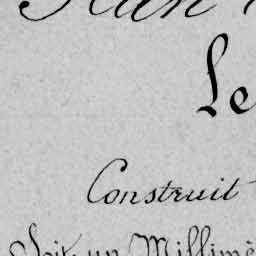 Plan
Le
Construit
Soit un Millimè